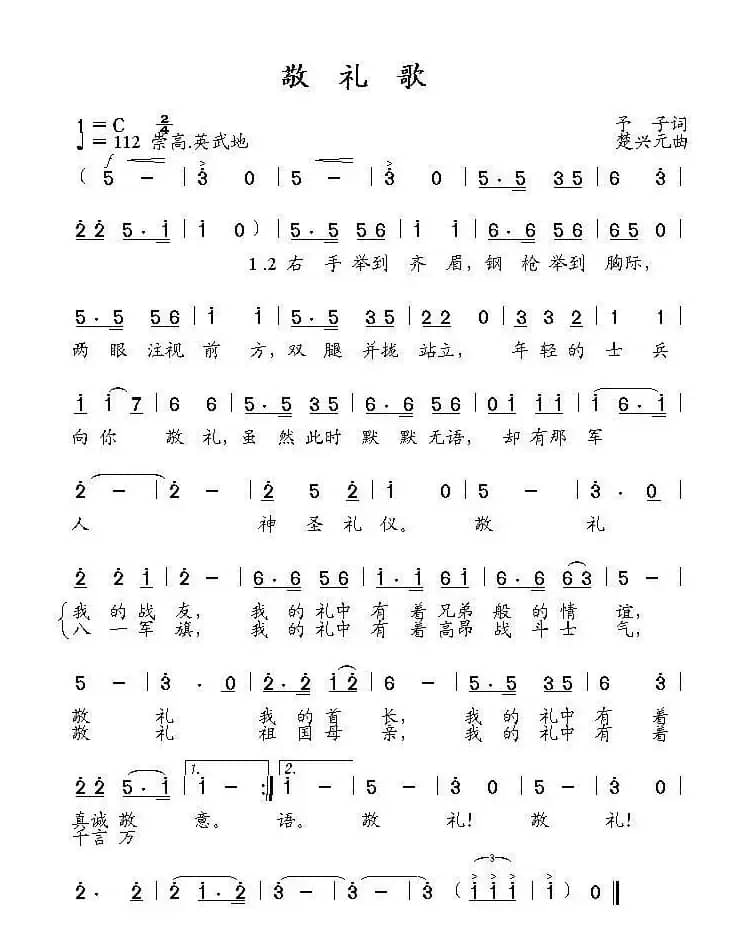 敬 礼 歌
1 = C 2/4 予 子词
♩ = 112 崇高.英武地 楚兴元曲
f
( 5 – | 3̇ 0 | 5 – | 3̇ 0 | 5 . 5 3 5 | 6 3̇ |
2̇ 2̇ 5 . i | i 0 ) | 5 . 5 5 6 | i i | 6 . 6 5 6 | 6 5 0 |
1 .2 右 手 举到 齐 眉, 钢 枪 举到 胸际,
5 . 5 5 6 | i i | 5 . 5 3 5 | 2 2 0 | 3 3 2 | 1 1 |
两 眼 注视 前 方, 双 腿 并拢 站立, 年 轻 的 士 兵
i i 7 | 6 6 | 5 . 5 3 5 | 6 . 6 5 6 | 0 i i i | i 6 . i |
向 你 敬 礼, 虽 然 此时 默 默 无语, 却 有那 军
2̇ – | 2̇ – | 2̇ 5 2̇ | i 0 | 5 – | 3̇ . 0 |
人 神 圣 礼 仪。 敬 礼
2̇ 2̇ i | 2̇ – | 6 . 6 5 6 | i . i 6 i | 6 . 6 6 3 | 5 – |
我 的 战 友, 我 的 礼中 有 着 兄弟 般 的 情 谊,
八 一 军 旗, 我 的 礼中 有 着 高昂 战 斗 士 气,
5 – | 3̇ . 0 | 2̇ . 2̇ i 2̇ | 6 – | 5 . 5 3 5 | 6 3̇ |
敬 礼 我 的 首 长, 我 的 礼中 有 着
敬 礼 祖 国 母 亲, 我 的 礼中 有 着
1. 2.
2̇ 2̇ 5 . i | i – :‖ i – | 5 – | 3̇ 0 | 5 – | 3̇ 0 |
真诚 敬 意。 语。 敬 礼! 敬 礼!
千言 万
3
2̇ . 2̇ | 2̇ i . 2̇ | 3̇ – | 3̇ – | 3̇ – ( i i i | i ) 0 ‖